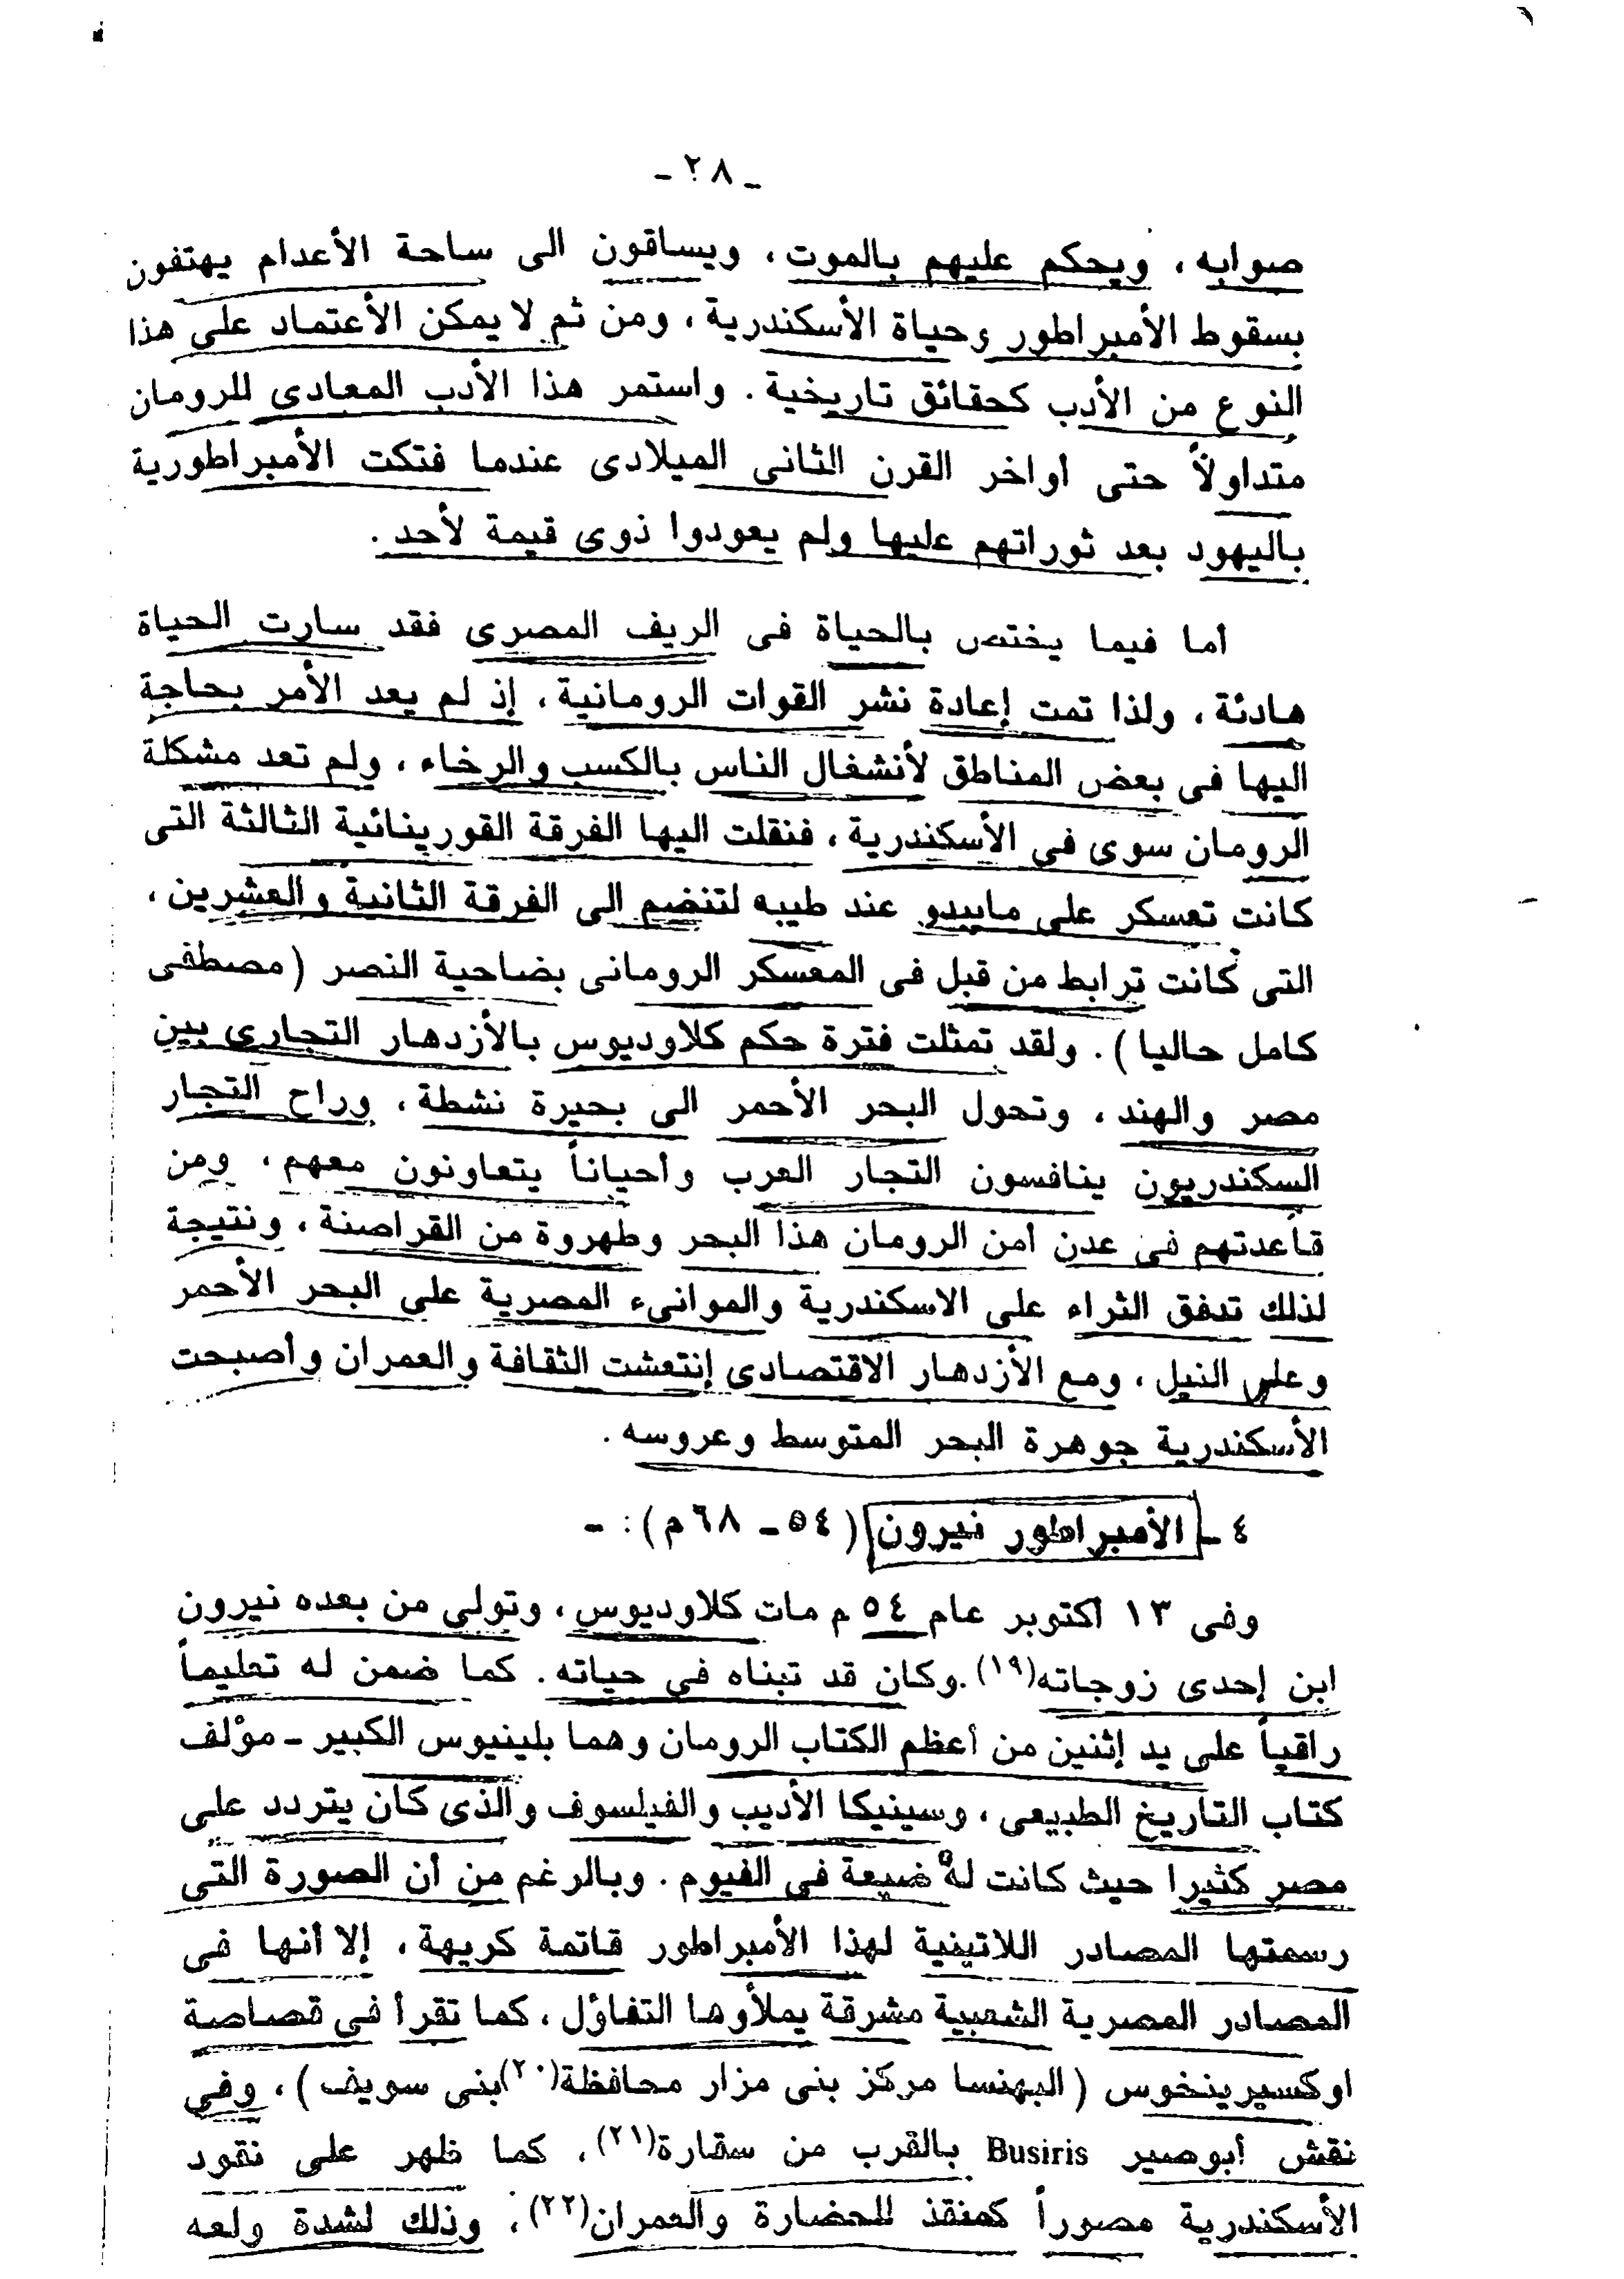 - ٢٨ -
صوابه ، ويحكم عليهم بالموت ، ويساقون الى ساحة الأعدام يهتفون
بسقوط الأمبراطور وحياة الأسكندرية ، ومن ثم لا يمكن الأعتماد على هذا
النوع من الأدب كحقائق تاريخية . واستمر هذا الأدب المعادى للرومان
متداولاً حتى أواخر القرن الثانى الميلادى عندما فتكت الأمبراطورية
باليهود بعد ثوراتهم عليها ولم يعودوا ذوى قيمة لأحد .
أما فيما يختص بالحياة فى الريف المصرى فقد سارت الحياة
هادئة ، ولذا تمت إعادة نشر القوات الرومانية ، إذ لم يعد الأمر بحاجة
اليها فى بعض المناطق لأنشغال الناس بالكسب والرخاء ، ولم تعد مشكلة
الرومان سوى فى الأسكندرية ، فنقلت اليها الفرقة القورينائية الثالثة التى
كانت تعسكر على مايبدو عند طيبه لتنضم الى الفرقة الثانية والعشرين ،
التى كانت ترابط من قبل فى المعسكر الرومانى بضاحية النصر (مصطفى
كامل حاليا) . ولقد تمثلت فترة حكم كلاوديوس بالأزدهار التجارى بين
مصر والهند ، وتحول البحر الأحمر الى بحيرة نشطة ، وراح التجار
السكندريون ينافسون التجار العرب وأحياناً يتعاونون معهم ، ومن
قاعدتهم فى عدن أمن الرومان هذا البحر وطهروة من القراصنة ، ونتيجة
لذلك تدفق الثراء على الاسكندرية والموانىء المصرية على البحر الأحمر
وعلى النيل ، ومع الأزدهار الاقتصادى إنتعشت الثقافة والعمران وأصبحت
الأسكندرية جوهرة البحر المتوسط وعروسه .
٤ - الأمبراطور نيرون (٥٤ - ٦٨ م) : -
وفى ١٣ أكتوبر عام ٥٤ م مات كلاوديوس ، وتولى من بعده نيرون
ابن إحدى زوجاته(١٩) .وكان قد تبناه فى حياته . كما ضمن له تعليماً
راقياً على يد إثنين من أعظم الكتاب الرومان وهما بلينيوس الكبير - مؤلف
كتاب التاريخ الطبيعى ، وسينيكا الأديب والفيلسوف والذى كان يتردد على
مصر كثيرا حيث كانت له ضيعة فى الفيوم . وبالرغم من أن الصورة التى
رسمتها المصادر اللاتينية لهذا الأمبراطور قاتمة كريهة ، إلا أنها فى
المصادر المصرية الشعبية مشرقة يملأوها التفاؤل ، كما تقرأ فى قصاصة
اوكسيرينخوس (البهنسا مركز بنى مزار محافظة(٢٠)بنى سويف) ، وفى
نقش أبوصير Busiris بالقرب من سقارة(٢١) ، كما ظهر على نقود
الأسكندرية مصوراً كمنقذ للحضارة والعمران(٢٢) ، وذلك لشدة ولعه